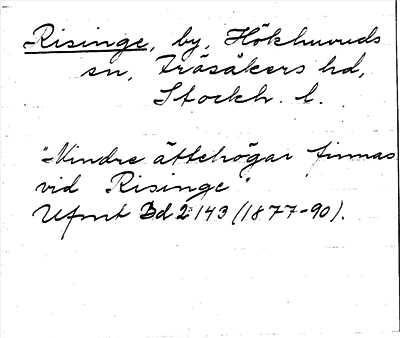 Risinge, by, Hökhuvuds
sn, Frösåkers hd,
Stockh. l.
"Mindre ättehögar finnas
vid Risinge".
Ufmt Bd 2 143 (1877-90).